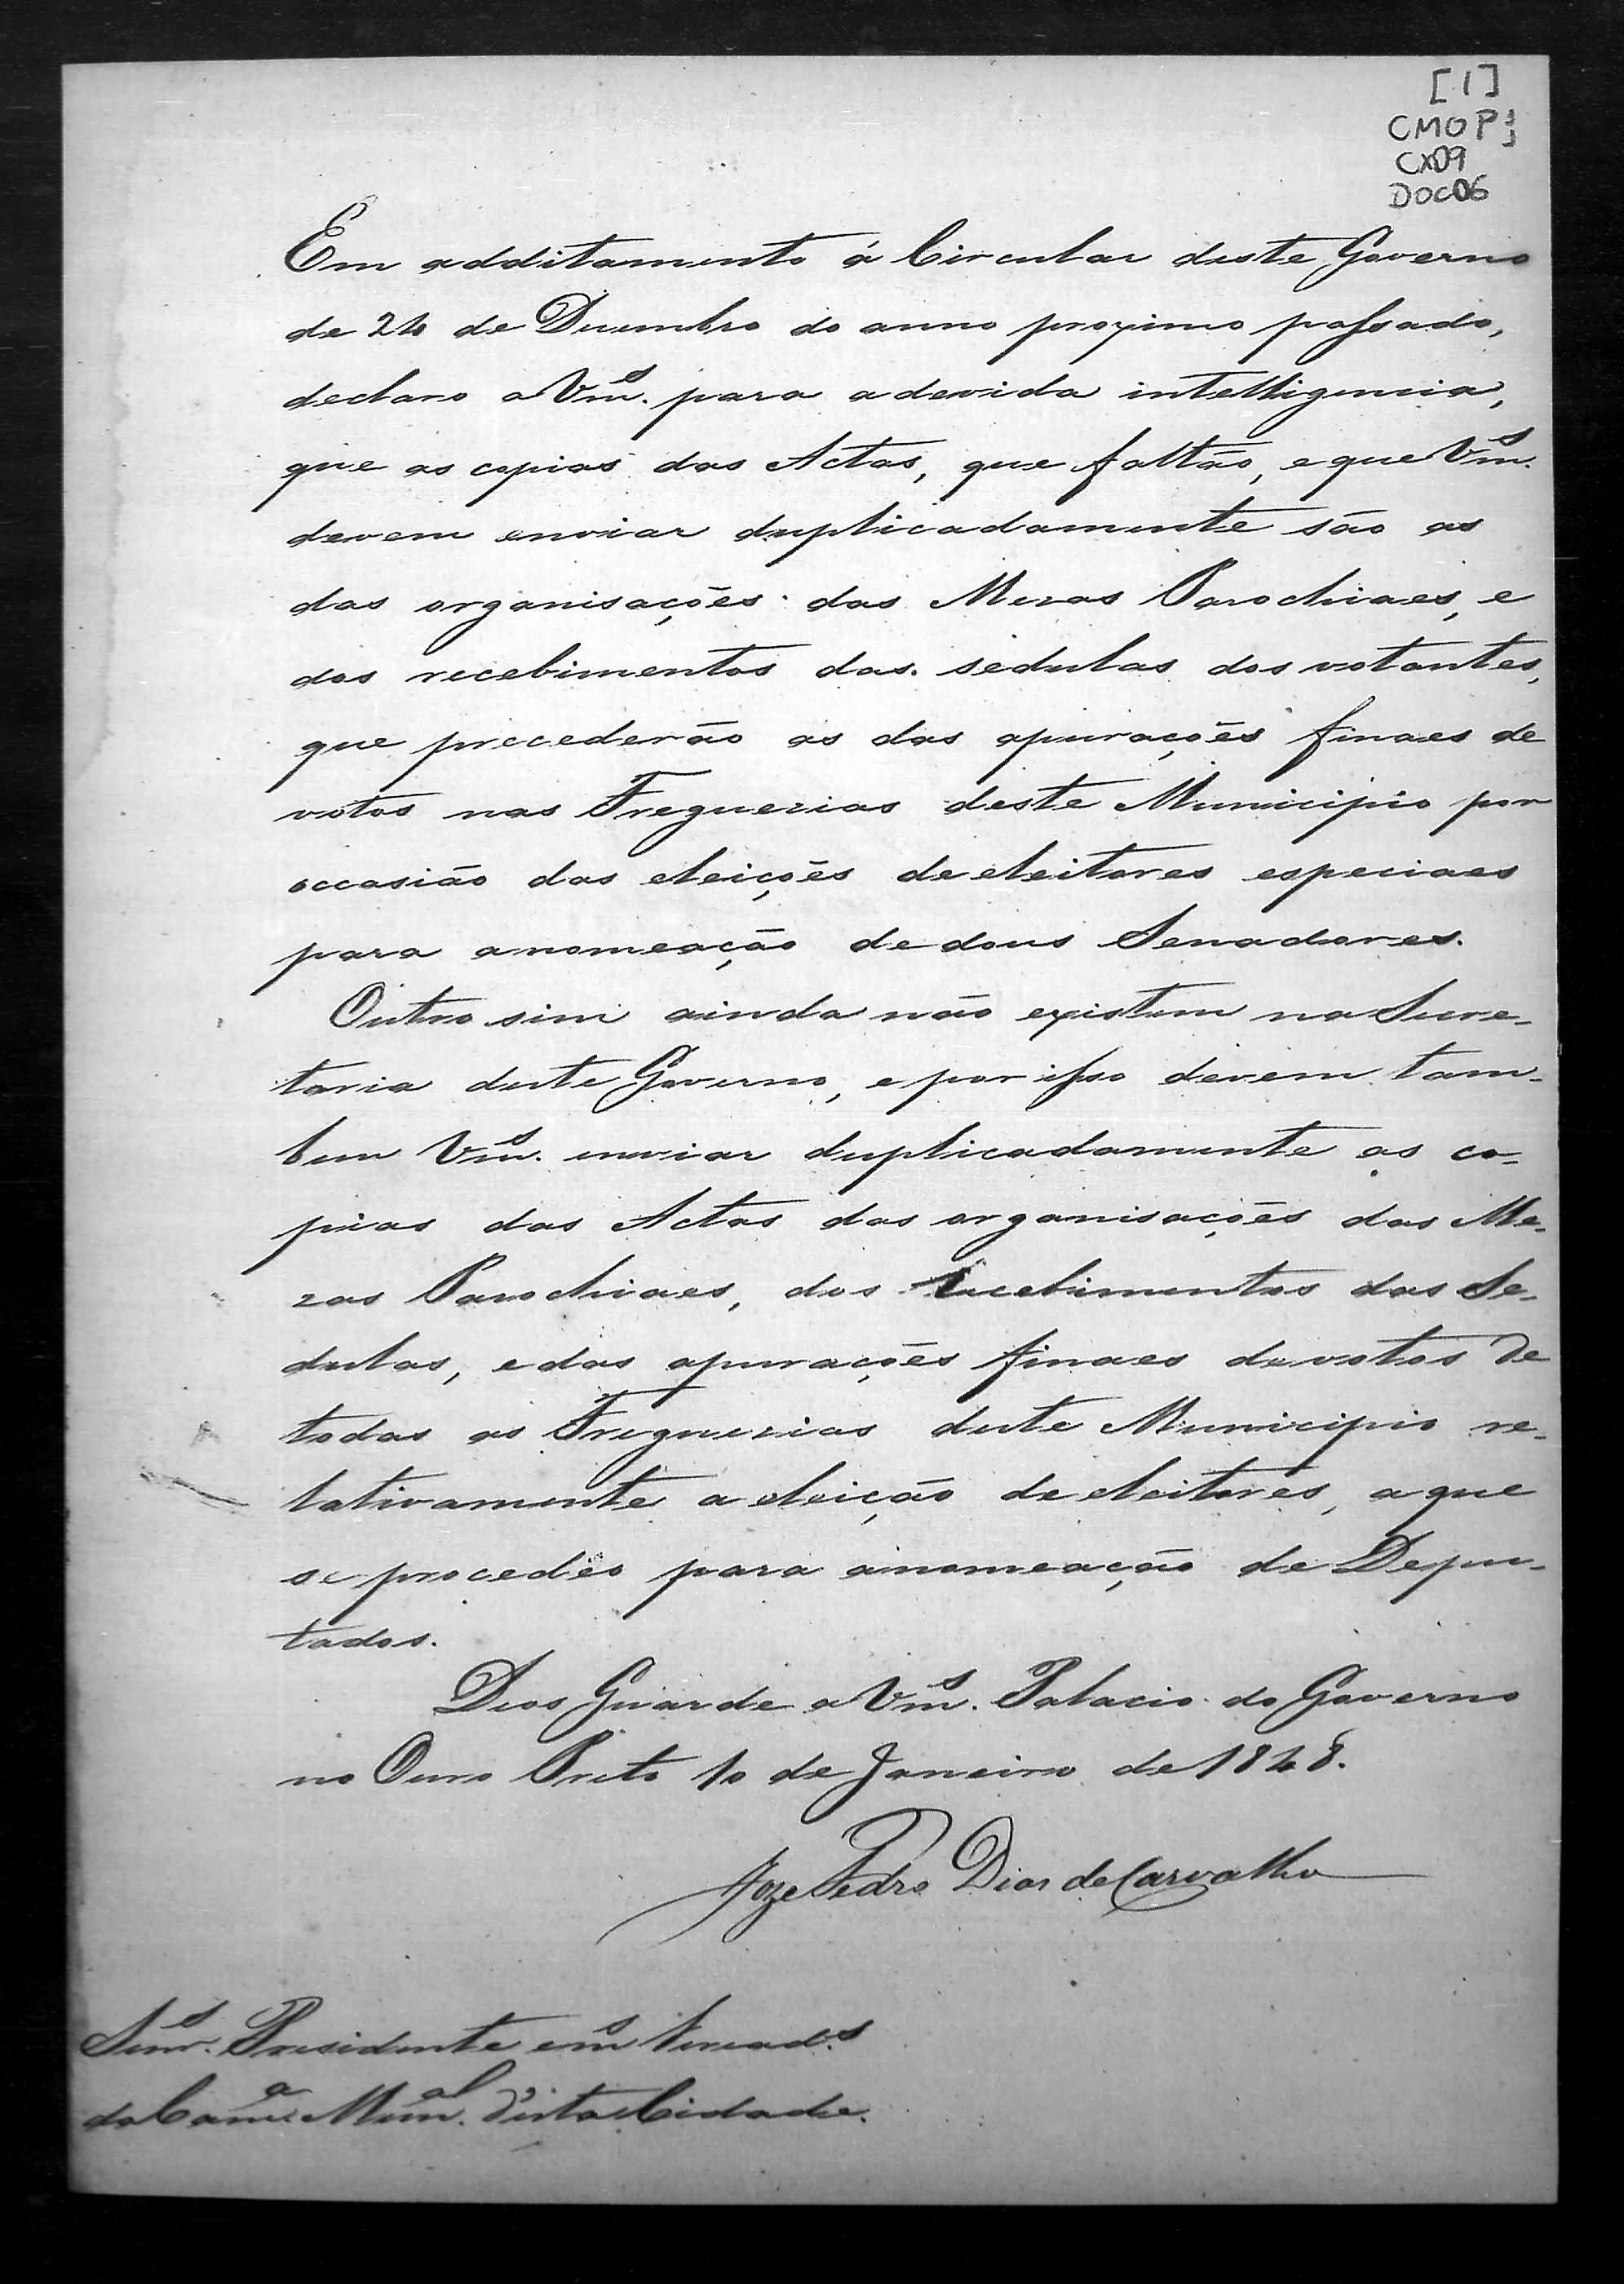 [1]
CMOP
CX09
DOC06
Em additamento á Circular deste Governo
de 24 de Dezembro do anno proximo passado,
declaro a Vm.ˢ para a devida intelligencia,
que as copias das Actas, que faltão, e que Vm.ˢ
devem enviar duplicadamente são as
das organisações das Mezas Parochiaes, e
dos recebimentos das sedulas dos votantes,
que precederão as das apurações finaes de
votos nas Freguezias deste Municipio por
occasião das eleições de eleitores especiaes
para a nomeação de dous Senadores.
Outro sim ainda não existem na Secre-
taria deste Governo, e por isso devem tam-
bem Vm.ˢ enviar duplicadamente as co-
pias das Actas das organisações das Me-
zas Parochiaes, dos recebimentos das Se-
dulas, e das apurações finaes de votos de
todas as Freguezias deste Municipio re-
lativamente a eleição de eleitores, a que
se procedêo para a nomeação de Depu-
tados.
Deos Guarde a Vm.ˢ Palacio do Governo
no Ouro Preto 10 de Janeiro de 1848.
Joze Pedro Dias de Carvalho
Senr.ˢ Presidente e m.ˢ Veread.ˢ
da Cam.ª Mun.ᵃˡ d'esta Cidade.